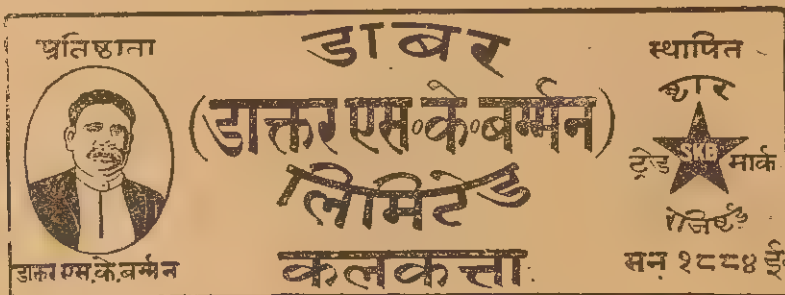 प्रतिष्ठाता
डाक्तर एस.के.बर्म्मन
डाबर
(डाक्तर एस॰के॰बर्म्मन)
लिमिटेड
कलकत्ता
स्थापित
स्टार
ट्रेड SKB मार्क
रेजिष्टर्ड
सन् १८८४ ई॰